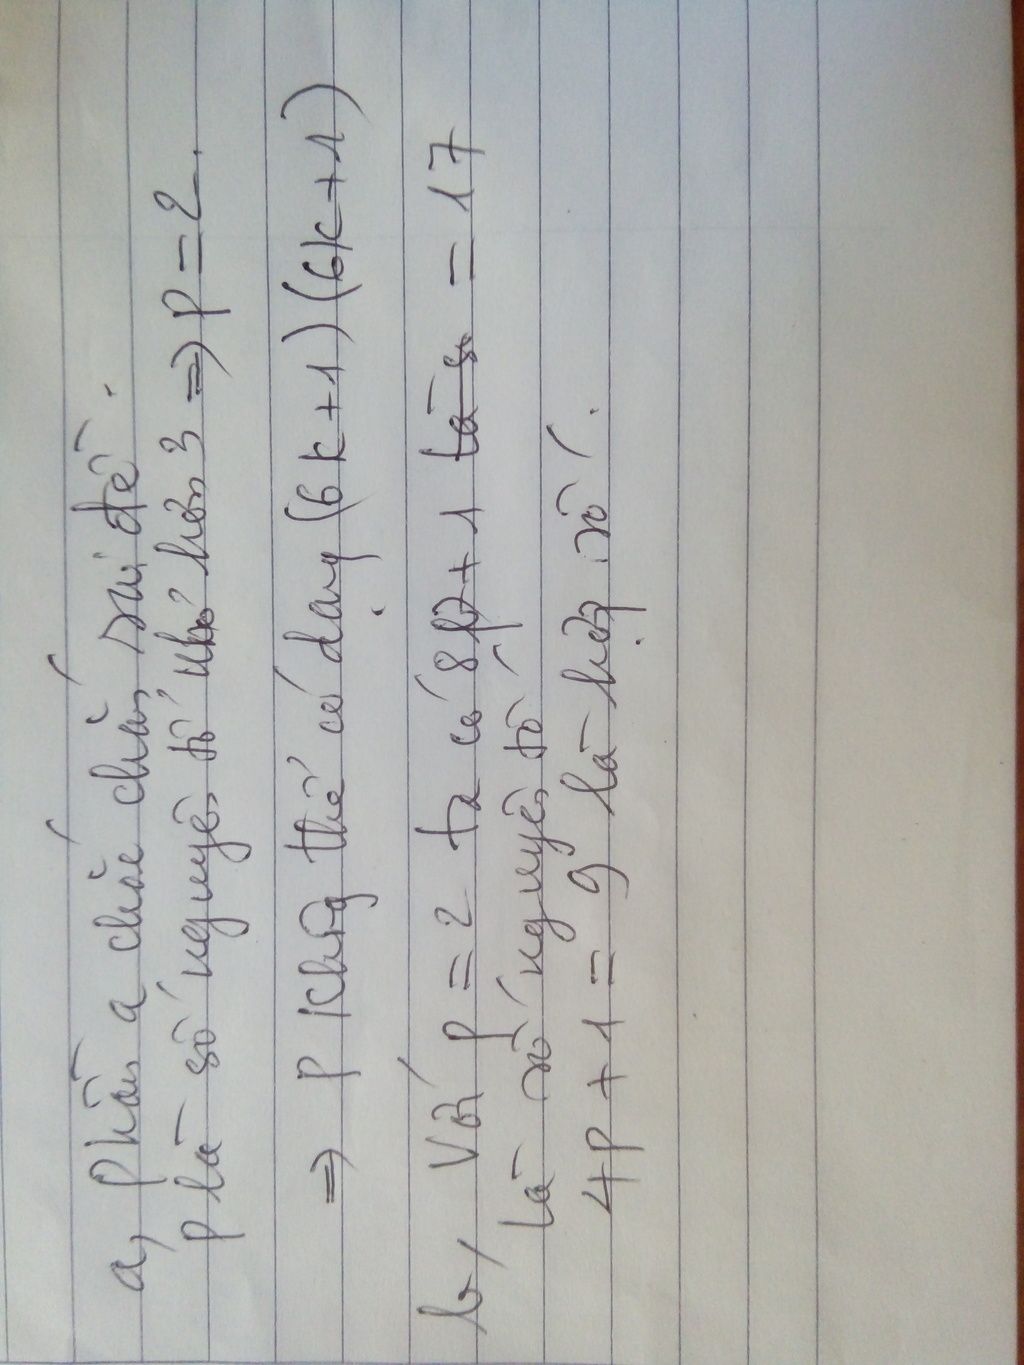 a, phần a chắc chắn sai đề.
P là số nguyên tố nhỏ hơn 3 => P = 2.
=> P không thể có dạng (6k+1)(6k+1)
b, Với P = 2 ta có 8p+1 là s = 17
là số nguyên tố
4P + 1 = 9 là hợp số.